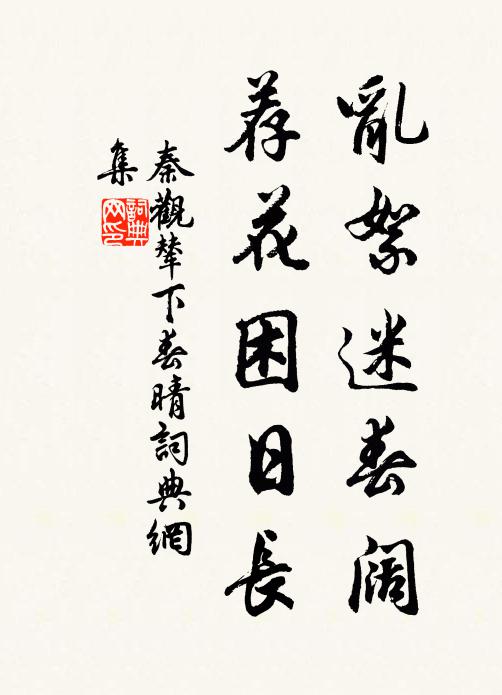 亂絮迷春闊
荐花困日長
秦觀輦下春晴詞典網
集
詞典
网印